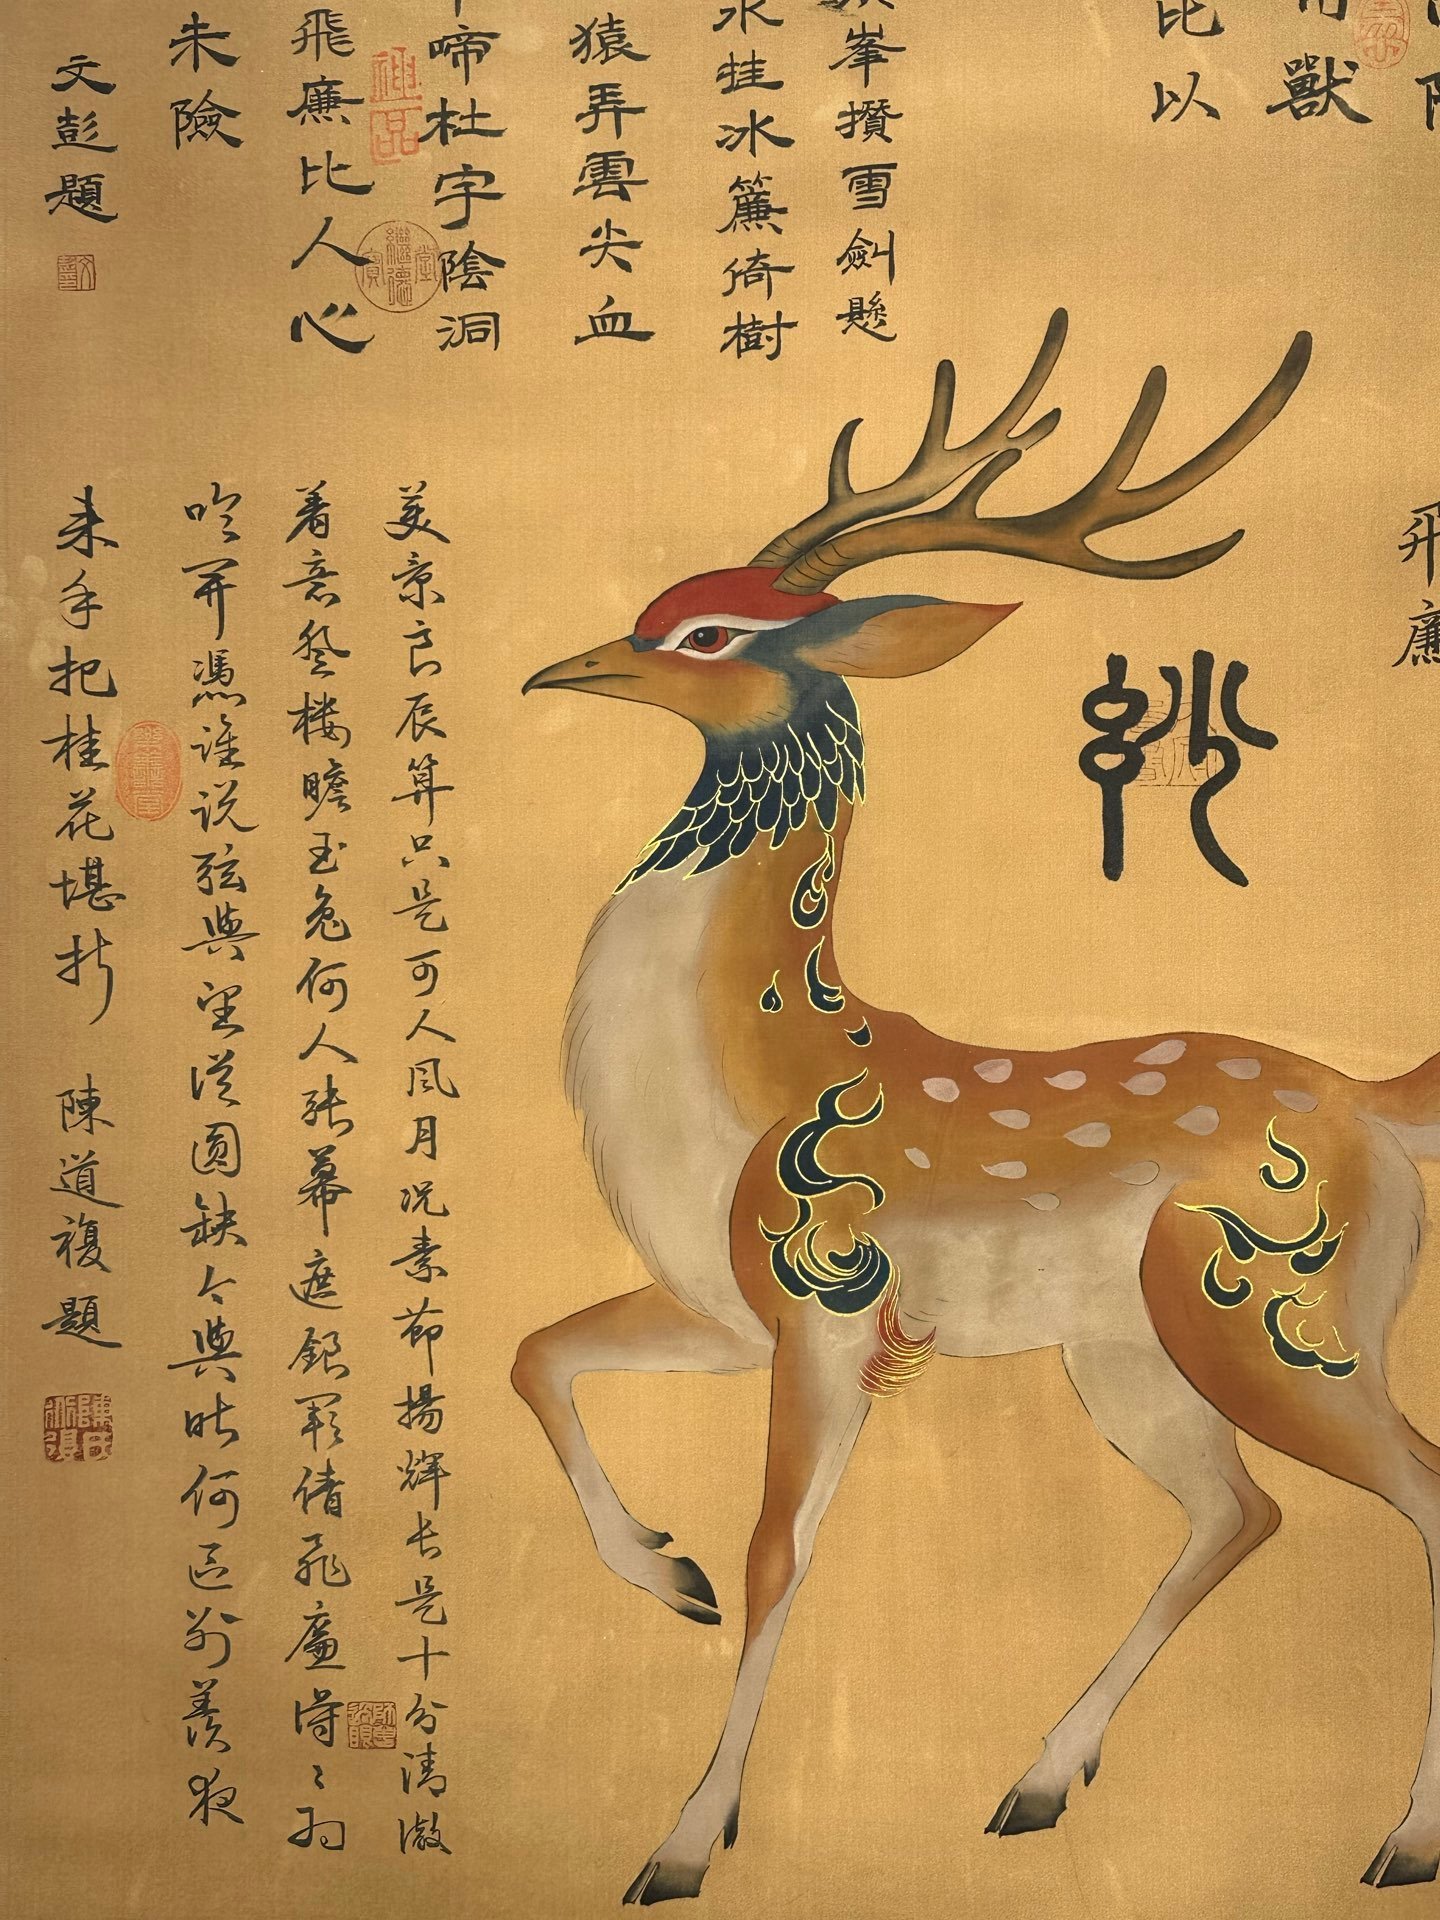 獸
比以
飛廉
妙
峯攢雪劍懸
水挂冰簾倚樹
猿弄雲尖血
啼杜宇陰洞
飛廉比人心
未險
文彭題
美景良辰算只是可人風月况素節揚輝长是十分清澈
着意登楼瞻玉兔何人張幕遮銀闕倩飛廉得得为
吹開憑谁说弦與望從圆缺今與昨何區别羨夜
来手把桂花堪折
陳道複題